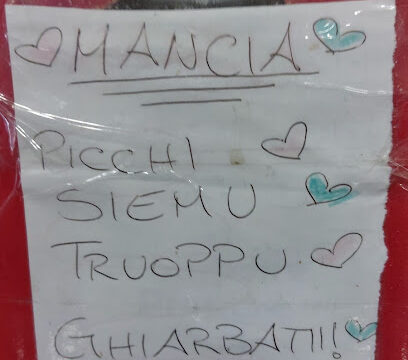 MANCIA
PICCHI
SIEMU
TRUOPPU.
GHIARBATI!!